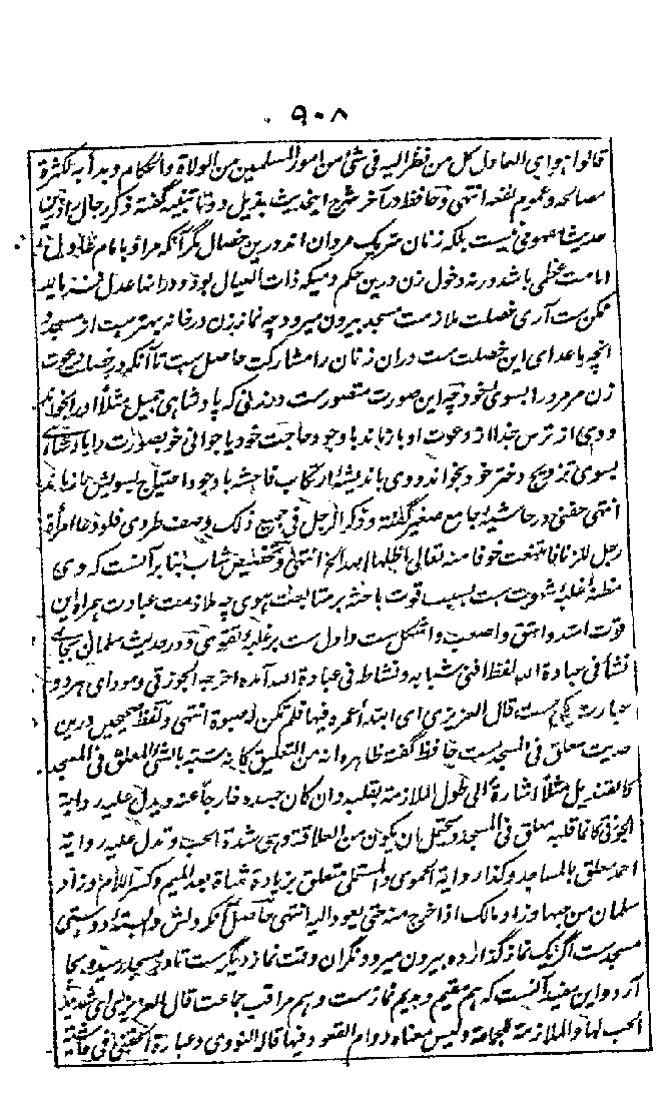 ۹۰۸
قالوا هو ای العادل کل من نظر الیه فی شئ من امور المسلمین من الولاة والحکام وبدأ به لکثرة
مصالحه وعموم نفعه انتهی وحافظ در آخر شرح این حدیث بذیل دو تا تنبیه گفته ذکر رجال درین
حدیث مفهومی نیست بلکه زنان شریک مردان اند درین خصال مگر آنکه مراد بامام عادل
امامت عظمی باشد ورنه دخول زن درین حکم وقتیکه ذات العیال بود و در آنها عدل فرماید
ممکن ست آری خصلت ملازمت مسجد بیرون میرود چه نماز زن در خانه بهتر ست از مسجد و
آنچه باعدای این خصلت ست دران زنان را مشارکت حاصل ست تا آنکه در خصلت دعوت
زن مر مرد را بسوی خود چه این صورت متصور ست در زنی که پادشاهی جمیل مثلاً او را بخواند
و وی از ترس خدا از دعوت او باز ماند باوجود حاجت خود یا جوانی خوبصورت را پادشاهی
بسوی تزویج دختر خود بخواند و وی باندیشهٔ ارتکاب فاحشه باوجود احتیاج بسویش باز ماند
انتهی حفنی در حاشیهٔ جامع صغیر گفته وذکر الرجل فی جمیع ذلک وصف طردی فلو دعا امرأة
رجل للزنا فامتنعت خوفا منه تعالی اظلها الله الخ انتهی وتخصیص شاب بنا بر آنست که وی
مظنهٔ غلبهٔ شهوت ست بسبب قوت باعثه بر متابعت هوی چه ملازمت عبادت همراه این
قوت اشد و اشق و اصعب و اشکل ست و ادل ست بر غلبهٔ تقوی و در حدیث سلمان بجای
نشأ فی عبادة الله لفظ افنی شبابه ونشاطه فی عبادة الله آمده اخرجه الجوزقی ومودای هر دو
عبارت یکی ست قال العزیزی ای ابتدأ عمره فیها فلم تکن له صبوة انتهی ولفظ صحیحین درین
حدیث معلق فی المسجد ست حافظ گفته ظاهره انه من التعلیق کأنه شبه بالشئ المعلق فی المسجد
کالقندیل مثلاً اشارة الی طول الملازمة بقلبه وان کان جسده خارجاً عنه ویدل علیه روایة
الجوزقی کانما قلبه معلق فی المسجد ویحتمل ان یکون من العلاقة وهی شدة الحب وتدل علیه روایة
احمد معلق بالمساجد وکذا روایة الحموی والمستملی متعلق بزیادة مثناة بعد المیم وکسر اللام وزاد
سلمان من حبها وزاد مالک اذا خرج منه حتی یعود الیه انتهی حاصل آنکه دلش وابستهٔ دوستی
مسجد ست اگر یک نماز گذارده بیرون میرود نگران وقت نماز دیگر ست تا در مسجد رسیده بجا
آرد و این مفید آنست که هم مقیم و مدیم نماز ست و هم مراقب جماعت قال العزیزی ای شدید
الحب لها والملازمة للجماعة ولیس معناه دوام القعود فیها قاله النووی وعبارة الحفنی فی حاشیة